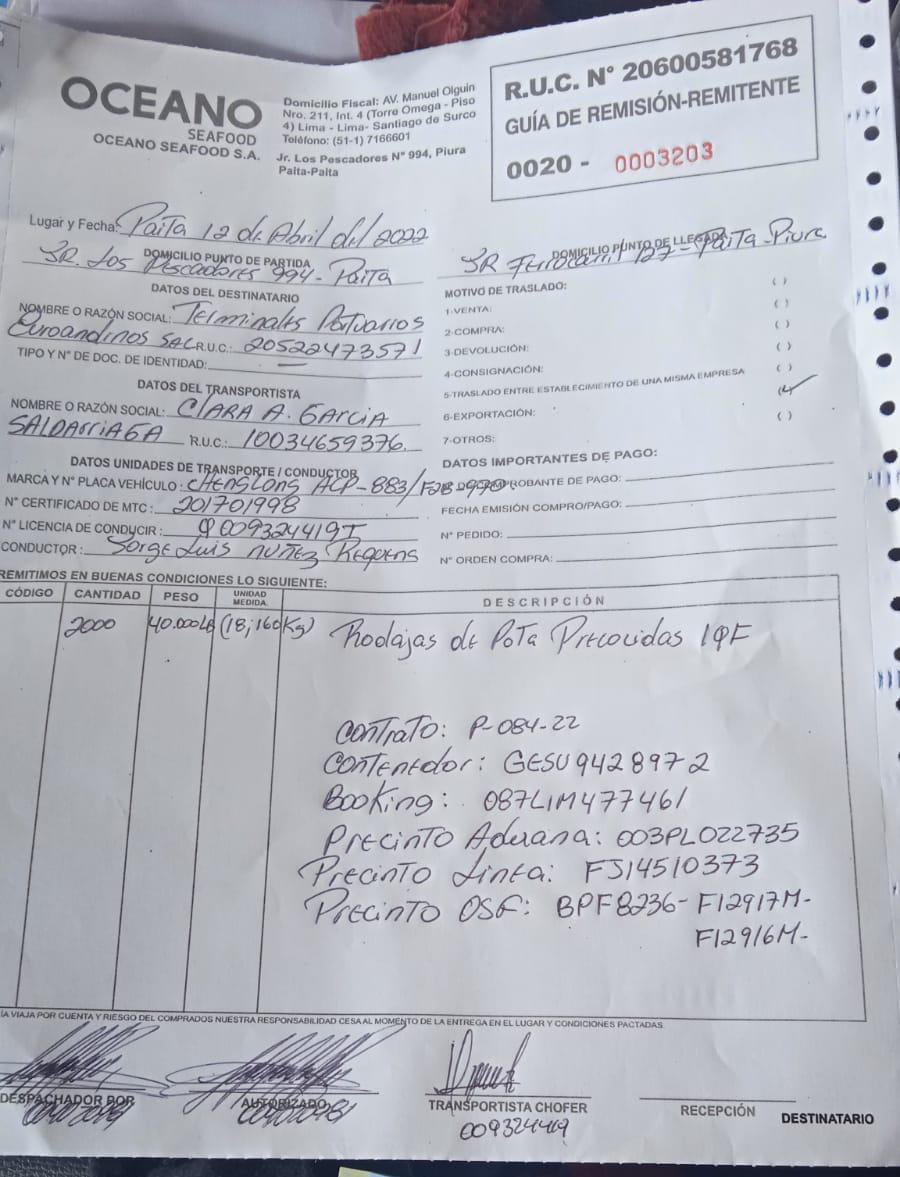 OCEANO
SEAFOOD
OCEANO SEAFOOD S.A.
Domicilio Fiscal: AV. Manuel Olguin
Nro. 211, Int. 4 (Torre Omega - Piso
4) Lima - Lima- Santiago de Surco
Teléfono: (51-1) 7166601
Jr. Los Pescadores N° 994, Piura
Paita-Paita
R.U.C. N° 20600581768
GUÍA DE REMISIÓN-REMITENTE
0020 - 0003203
Lugar y Fecha: Paita 12 de Abril del 2022
DOMICILIO PUNTO DE PARTIDA
JR. Los Pescadores 994 - Paita
DOMICILIO PUNTO DE LLEGADA
JR Ferrocarril 127 - Paita - Piura
DATOS DEL DESTINATARIO
NOMBRE O RAZÓN SOCIAL: Terminales Portuarios
Euroandinos SAC R.U.C.: 20522473571
TIPO Y N° DE DOC. DE IDENTIDAD:
DATOS DEL TRANSPORTISTA
NOMBRE O RAZÓN SOCIAL: CLARA A. GARCIA
SALDARRIAGA R.U.C.: 10034659376
DATOS UNIDADES DE TRANSPORTE / CONDUCTOR
MARCA Y N° PLACA VEHÍCULO: CHENGLONG ACP-883/
N° CERTIFICADO DE MTC: 201701998
N° LICENCIA DE CONDUCIR: Q009324419T
CONDUCTOR: Jorge Luis NUÑEZ Requens
MOTIVO DE TRASLADO:
1-VENTA: ( )
2-COMPRA: ( )
3-DEVOLUCIÓN: ( )
4-CONSIGNACIÓN: ( )
5-TRASLADO ENTRE ESTABLECIMIENTO DE UNA MISMA EMPRESA ( )
6-EXPORTACIÓN: (✓)
7-OTROS: ( )
DATOS IMPORTANTES DE PAGO:
PROBANTE DE PAGO:
FECHA EMISIÓN COMPRO/PAGO:
N° PEDIDO:
N° ORDEN COMPRA:
REMITIMOS EN BUENAS CONDICIONES LO SIGUIENTE:
CÓDIGO CANTIDAD PESO UNIDAD MEDIDA DESCRIPCIÓN
2000 40.000LB (18,160Kg) Rodajas de Pota Precocidas IQF
Contrato: P-084-22
Contenedor: GESU 942897-2
Booking: 087LIM477461
Precinto Aduana: 003PL022735
Precinto Linea: FJ14510373
Precinto OSF: BPF8236- F12917M-
F12916M-
LA VIAJA POR CUENTA Y RIESGO DEL COMPRADOS NUESTRA RESPONSABILIDAD CESA AL MOMENTO DE LA ENTREGA EN EL LUGAR Y CONDICIONES PACTADAS
DESPACHADOR POR
AUTORIZADO
TRANSPORTISTA CHOFER
009324419
RECEPCIÓN
DESTINATARIO